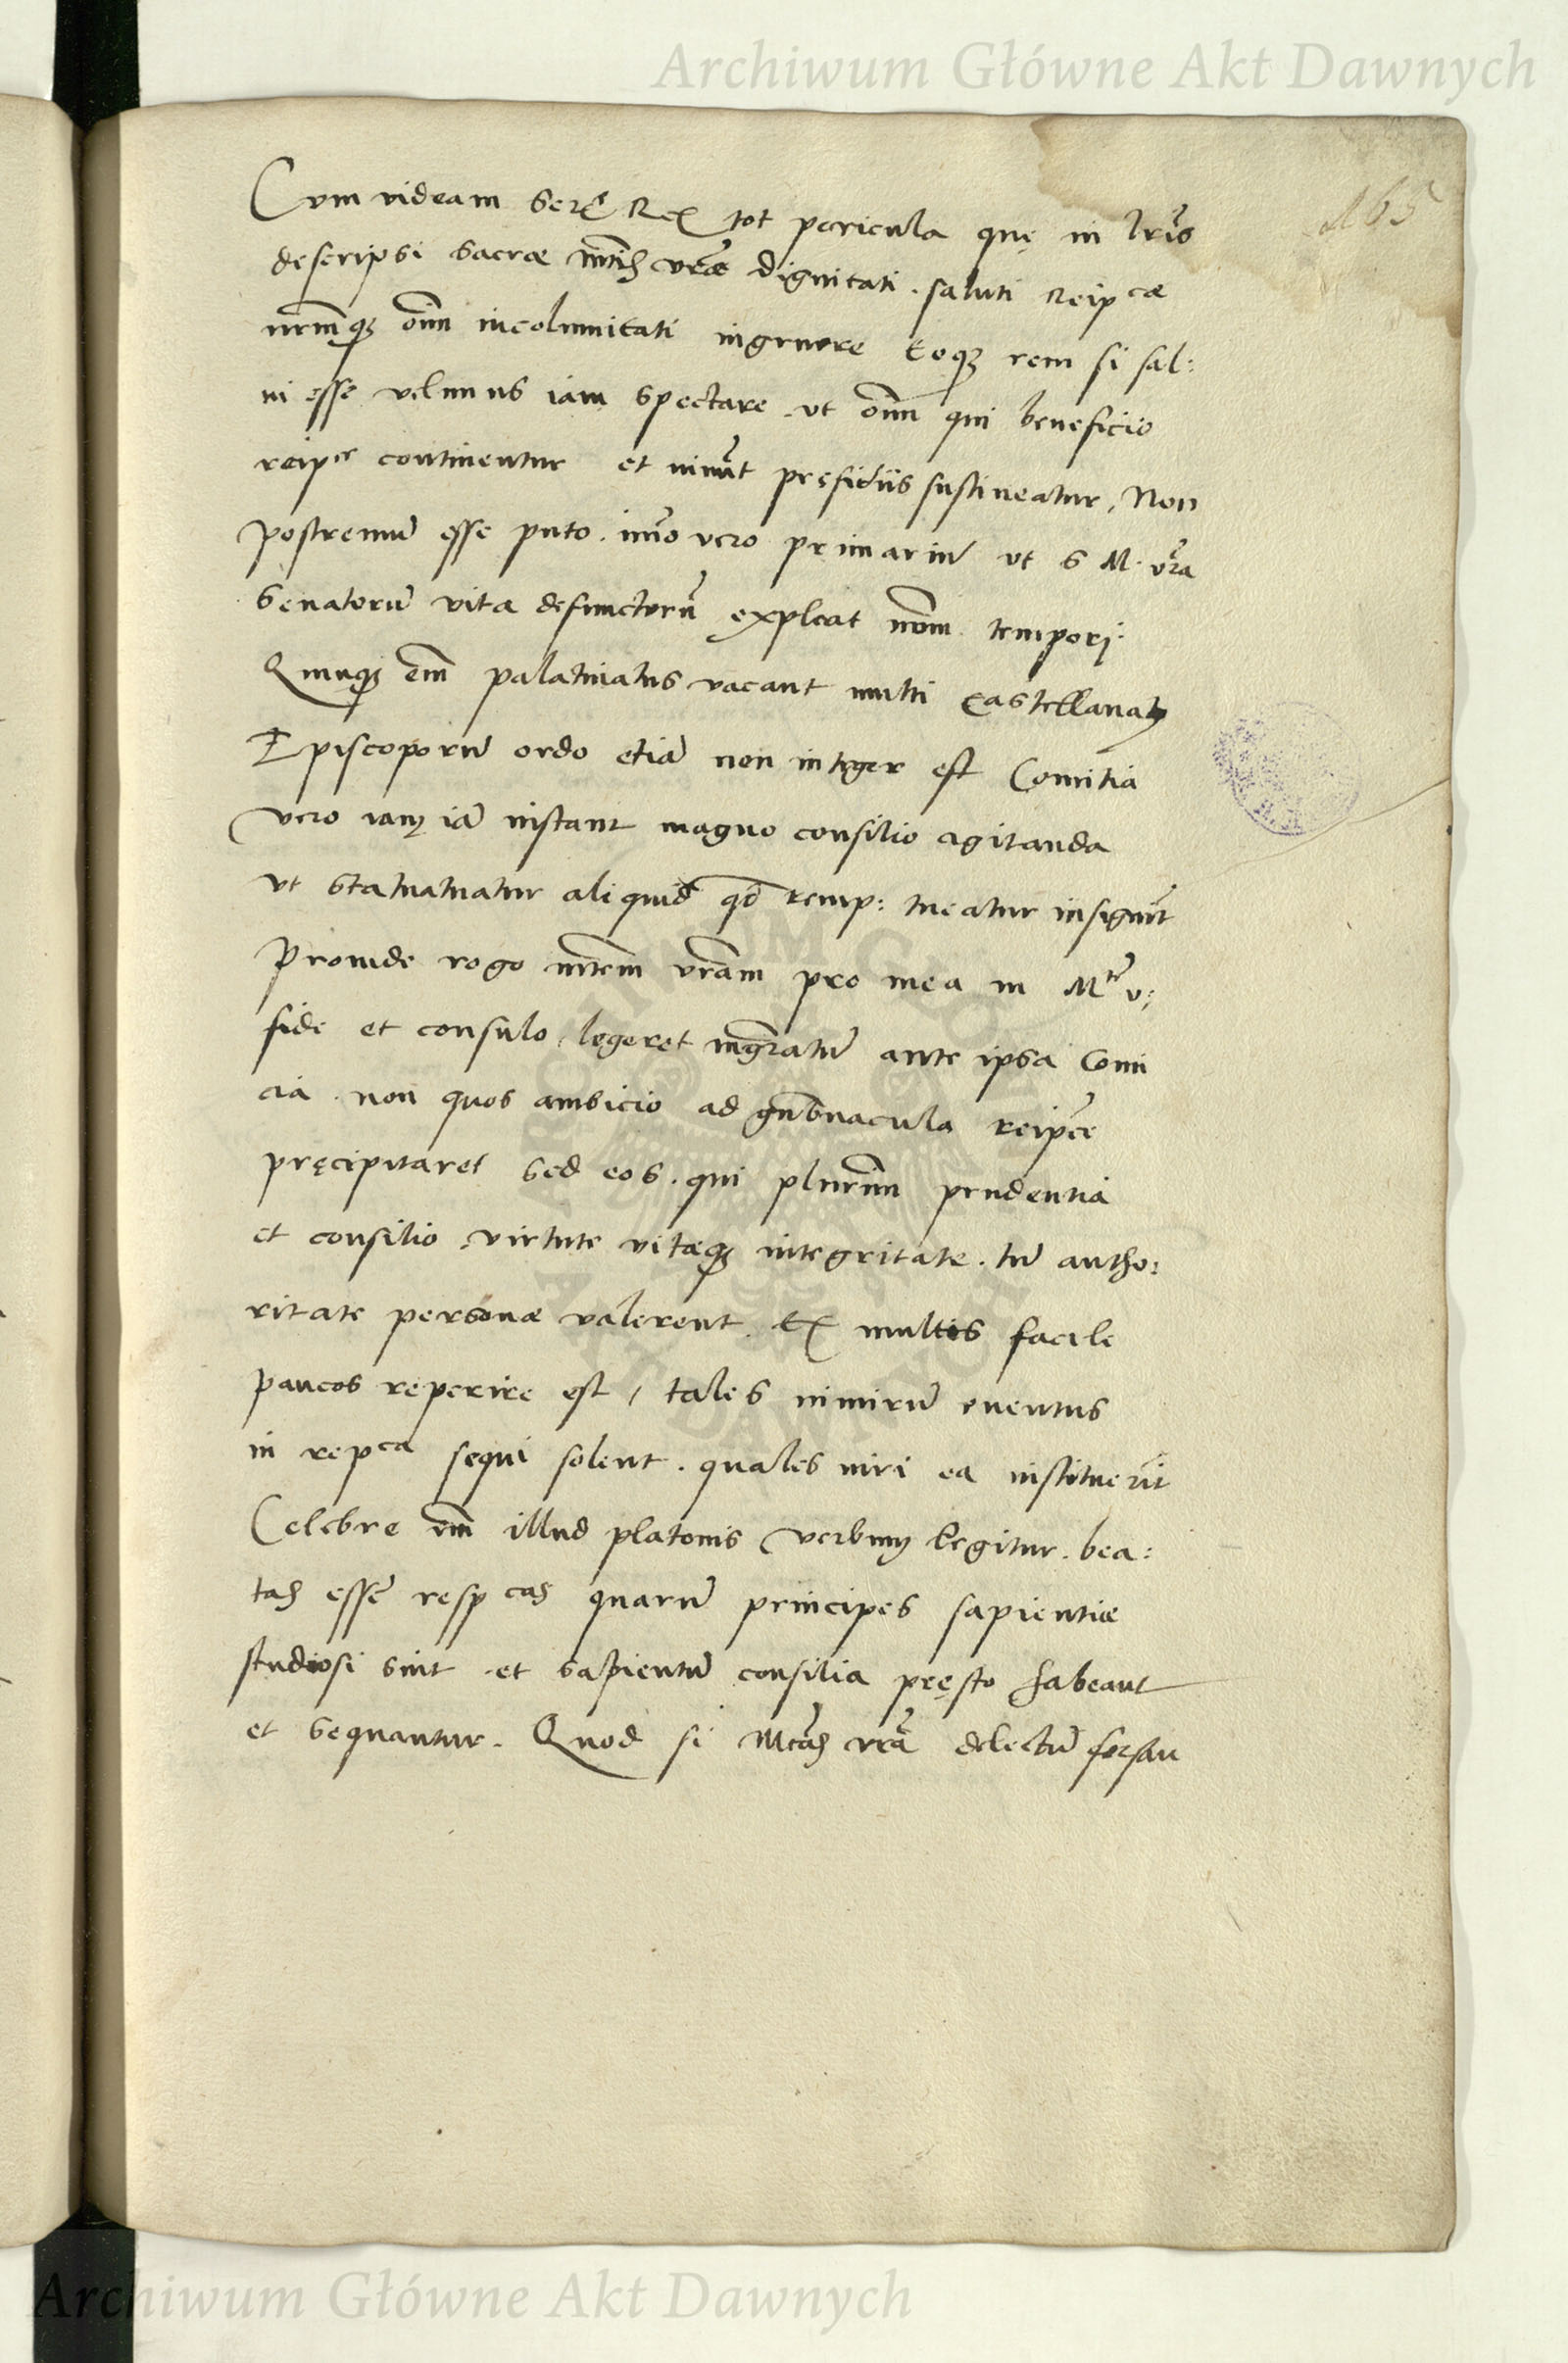 Archiwum Główne Akt Dawnych
165
Cum videam Serē Rex tot pericula quę in lr̃is
descripsi sacræ mtis vr̃æ dignitati. saluti Reipcæ
nr̃mq; om̃ incolumitati ingruere Eoq; rem si sal:
vi esse velimus iam spectare. ut om̃ qui beneficio
reipce continentur et vivũt pręsidiis sustineatur, Non
postremũ esse puto. im̃o vero primariũ ut S M. vr̃a
Senatorũ vita defunctorũ expleat nõm tempori.
Quinq; em̃ palatinatus vacant multi Castellanatus
Episcoporũ ordo etiã non integer est Comitia
vero iam iã instant magno consilio agitanda
ut statuatuatur aliquid qd̃ remp: tueatur insigniũt
Proinde rogo mtem vr̃am pro mea in Mte v:
fide et consulo, legeret mgr̃atũ ante ipsa Comi
cia. non quos ambicio ad gub̃nacula reipce
pręcipitaret sed eos. qui plurim̃ prudentia
et consilio, virtute vitæq; integritate. tũ autho:
ritate personæ valerent. Ex multis facile
paucos reperire est, tales nimirũ eventus
in repca sequi solent. quales viri ea instituerũt
Celebre em̃ illud platonis verbum legitur. bea:
tas esse respcas quarũ principes sapientiæ
studiosi sint. et sapientũ consilia pręsto habeant
et sequantur. Quod si Mtas vr̃a delectũ forsan
Archiwum Główne Akt Dawnych